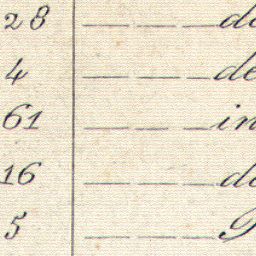 28 — — — do
4 — — — de
61 — — — in
16 — — — do
5 — — —